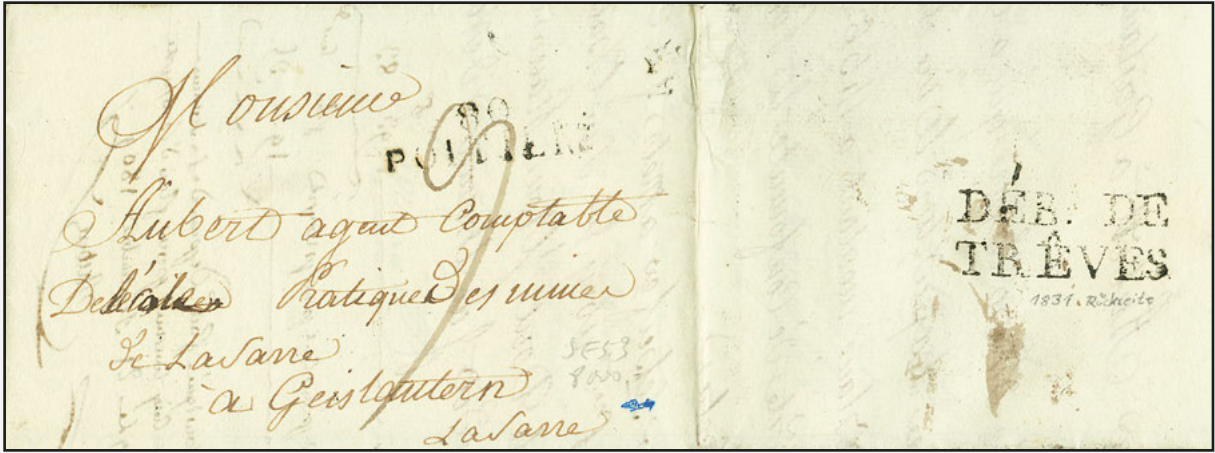 Monsieur
80
POITIERS
Aubert agent Comptable
De l'école Pratique Des mines
de La Sarre
à Geislautern
La Sarre
DÉB. DE
TRÊVES
1831. Rückseite
SE53
8000,-